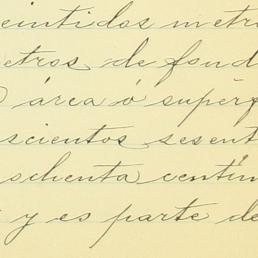 eintidos metro
etros de fond
área ó superf
scientos sesent
ochenta centím
y es parte de